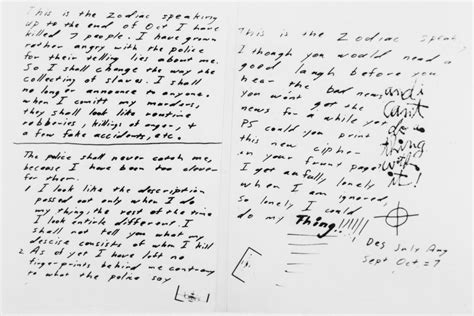 This is the Zodiac speaking
up to the end of Oct I have
killed 7 people. I have grown
rather angry with the police
for their telling lies about me.
So I shall change the way the
collecting of slaves. I shall
no longer announce to anyone.
when I comitt my murders,
they shall look like routine
robberies, killings of anger, +
a few fake accidents, etc.
The police shall never catch me,
because I have been too clever
for them.
1 I look like the description
passed out only when I do
my thing, the rest of the time
I look entirle different. I
shall not tell you what my
descise consists of when I kill
2 As of yet I have left no
fingerprints behind me contrary
to what the police say
This is the Zodiac speak
I though you would need a
good laugh before you
hear the bad news
you won't get the
news for a while yet
PS could you print
this new cipher
in your front page
I get awfully lonely
when I am ignored,
so lonely I could
do my Thing!!!!!!
and i
cant
do a
thing
with
it!
Des July Aug
Sept Oct = 7